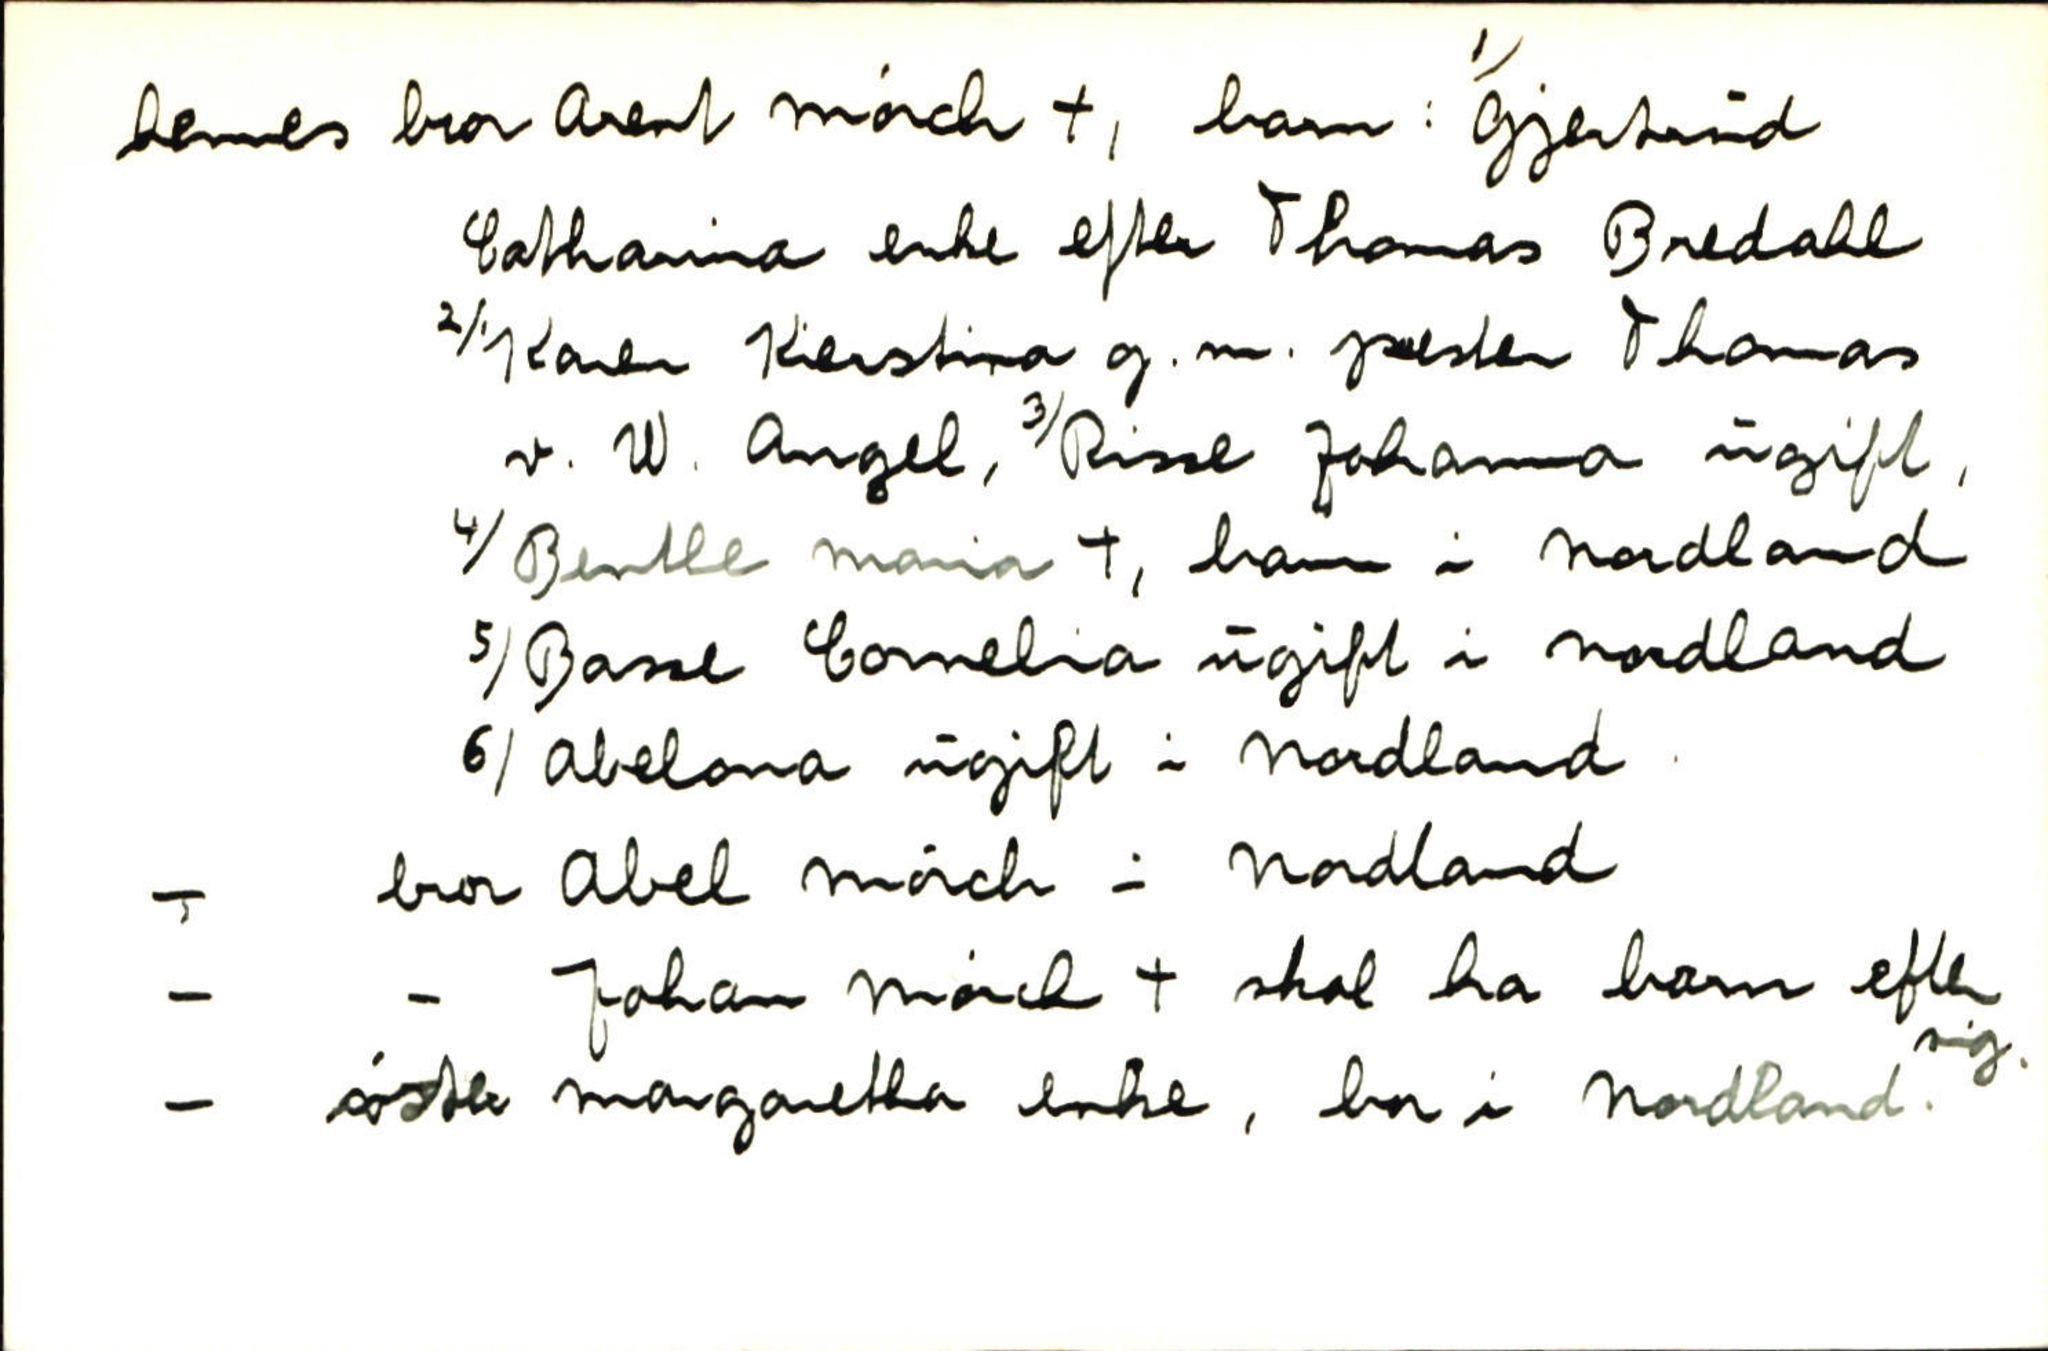 hennes bror Arent Mörch +, barn: 1/ Gjertrud
Catharina enke efter Thomas Bredahl
2/ Karen Kierstina g.m. prester Thomas
v. W. Angel, 3/ Risse Johanna ugift,
4/ Bentle Maria +, barn i Nordland
5/ Basse Cornelia ugift i Nordland
6/ Abelona ugift i Nordland.
— bror Abel Mörch i Nordland
— - Johan Mörch + skal ha barn efter sig.
— söster Margaretha enke, bor i Nordland.